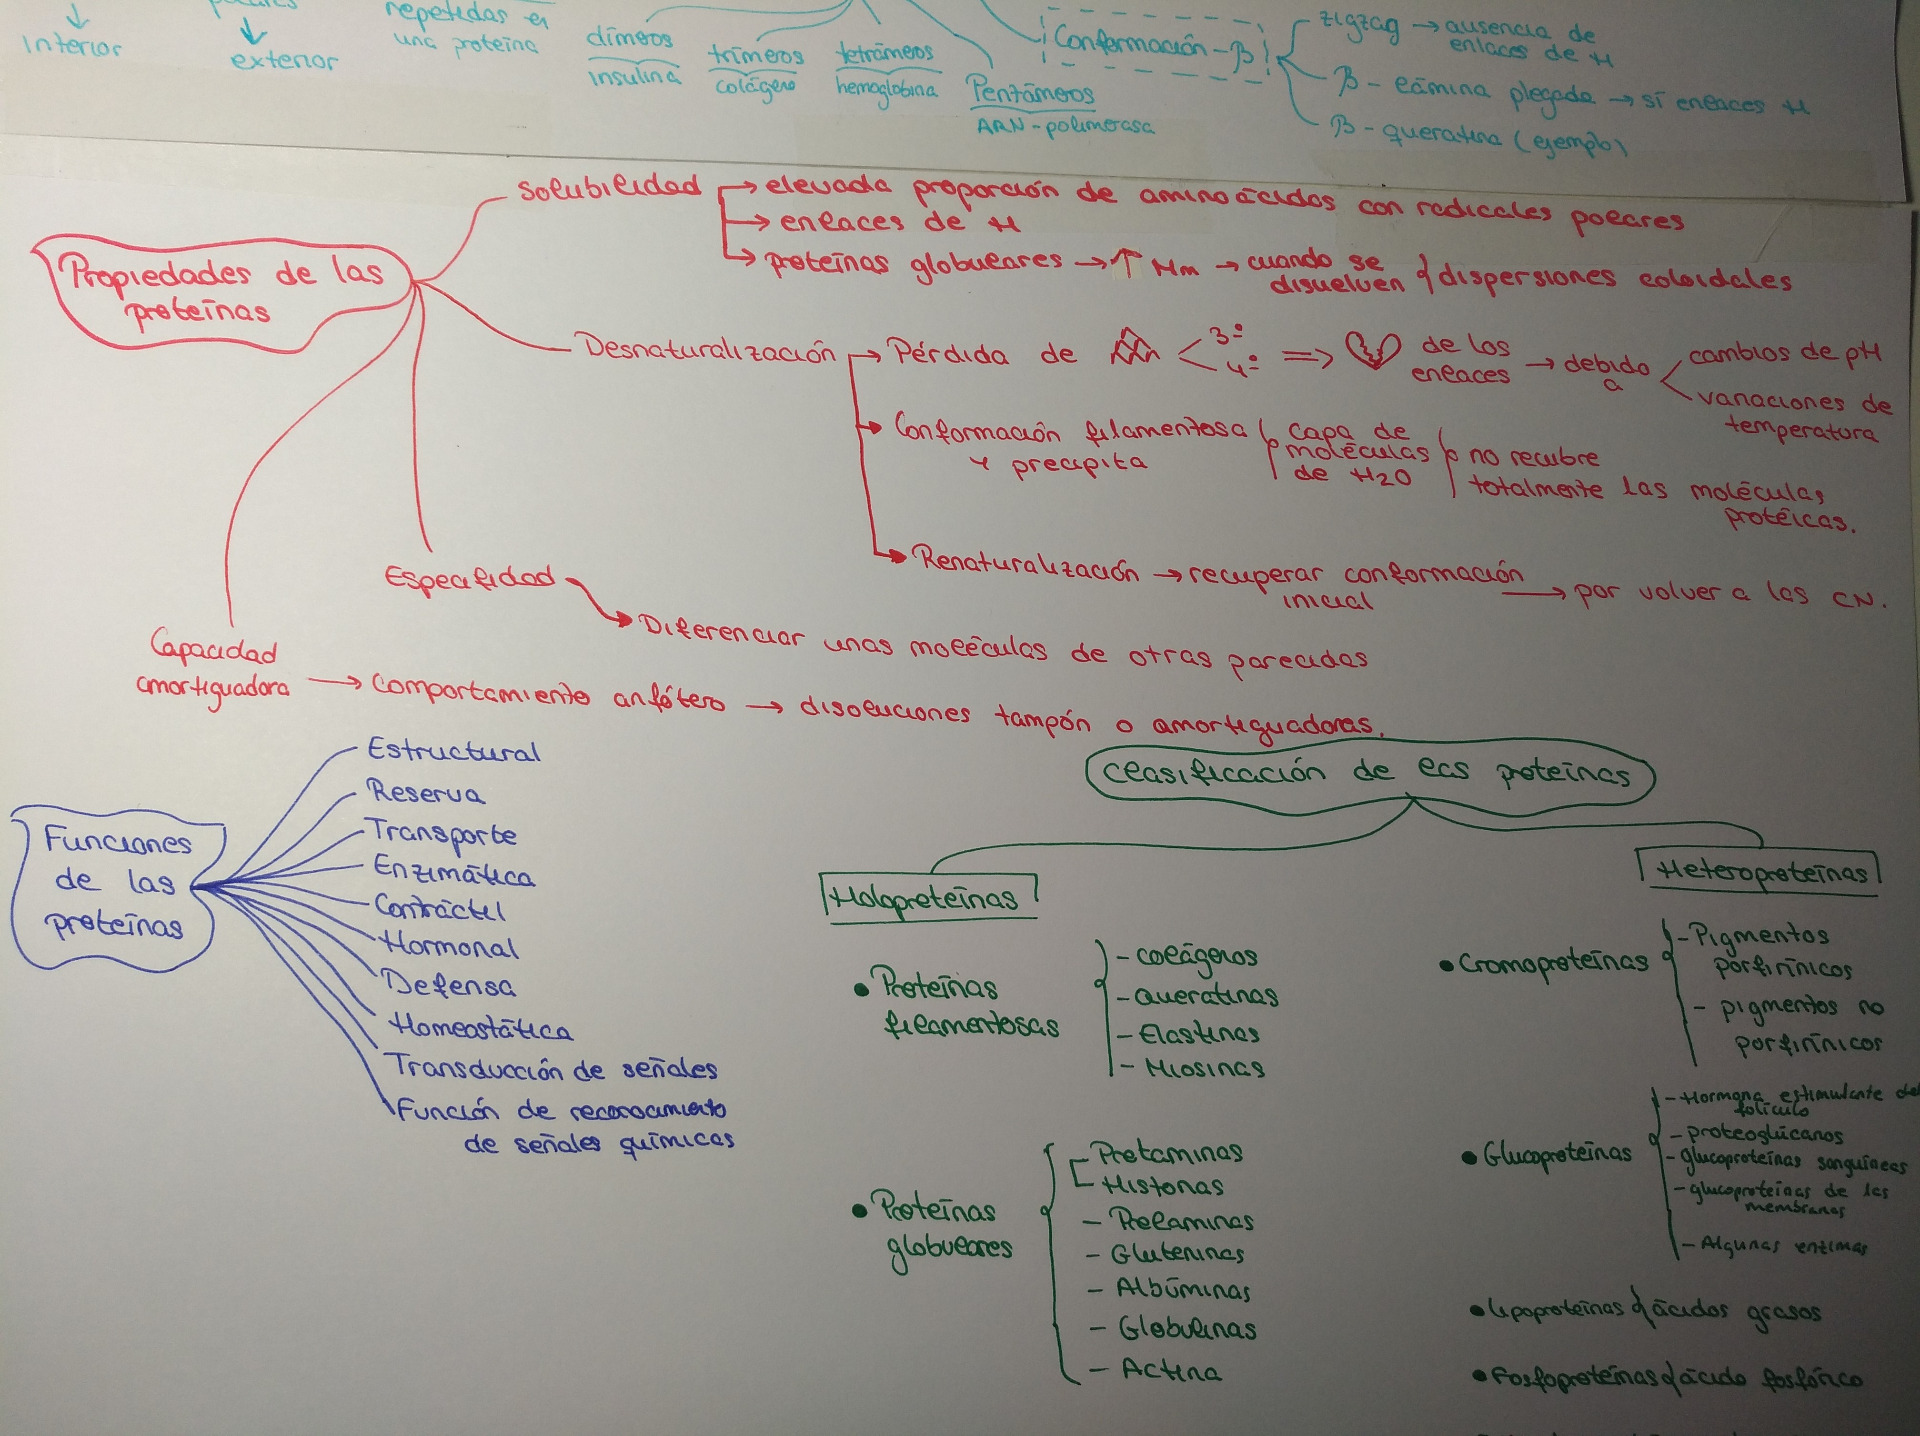 interior
exterior
repetidas en
una proteína
dímeros
insulina
trímeros
colágeno
tetrámeros
hemoglobina
Pentámeros
ARN-polimerasa
Conformación-β
zigzag → ausencia de
enlaces de H
β-lámina plegada → sí enlaces H
β-queratina (ejemplo)
Propiedades de las
proteínas
solubilidad
→ elevada proporción de aminoácidos con radicales polares
→ enlaces de H
→ proteínas globulares → ↑ Mm → cuando se
disuelven { dispersiones coloidales
Desnaturalización → Pérdida de < 3º
4º
⇒ de los
enlaces → debido
a
cambios de pH
variaciones de
temperatura
Conformación filamentosa
y precipita
capa de
moléculas
de H2O
no recubre
totalmente las moléculas
protéicas.
Renaturalización → recuperar conformación
inicial
→ por volver a las CN.
Especifidad
Diferenciar unas moléculas de otras parecidas
Capacidad
amortiguadora → comportamiento anfótero → disoluciones tampón o amortiguadoras.
Funciones
de las
proteínas
Estructural
Reserva
Transporte
Enzimática
Contráctil
Hormonal
Defensa
Homeostática
Transducción de señales
Función de reconocimiento
de señales químicas
Clasificación de las proteínas
Holoproteínas
• Proteínas
filamentosas
- colágenos
- Queratinas
- Elastinas
- Miosinas
• Proteínas
globulares
Protaminas
Histonas
- Prolaminas
- Gluteninas
- Albúminas
- Globulinas
- Actina
Heteroproteínas
• Cromoproteínas
- Pigmentos
porfirínicos
- pigmentos no
porfirínicos
• Glucoproteínas
- Hormona estimulante del
folículo
- proteoglúcanos
- glucoproteínas sanguíneas
- glucoproteínas de las
membranas
- Algunas enzimas
• Lipoproteínas { ácidos grasos
• Fosfoproteínas { ácido fosfórico